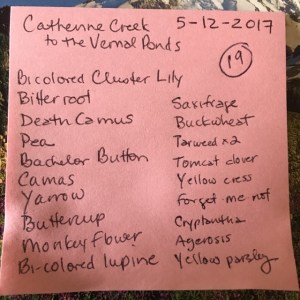 Catherine Creek 5-12-2017
to the Vernal Ponds
19
Bicolored Cluster Lily
Bitterroot
Death Camus
Pea
Bachelor Button
Camas
Yarrow
Buttercup
Monkey flower
Bi-colored lupine
Saxifrage
Buckwheat
Tarweed x2
Tomcat clover
Yellow cress
Forget me not
Cryptantha
Agerosis
Yellow parsley